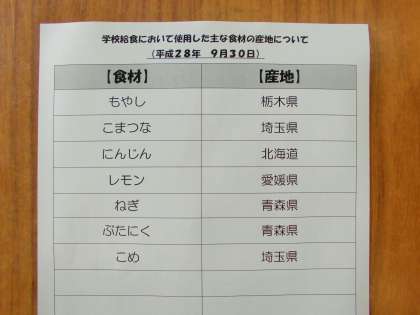 学校給食において使用した主な食材の産地について
（平成２８年　９月３０日）
【食材】　【産地】
もやし　栃木県
こまつな　埼玉県
にんじん　北海道
レモン　愛媛県
ねぎ　青森県
ぶたにく　青森県
こめ　埼玉県